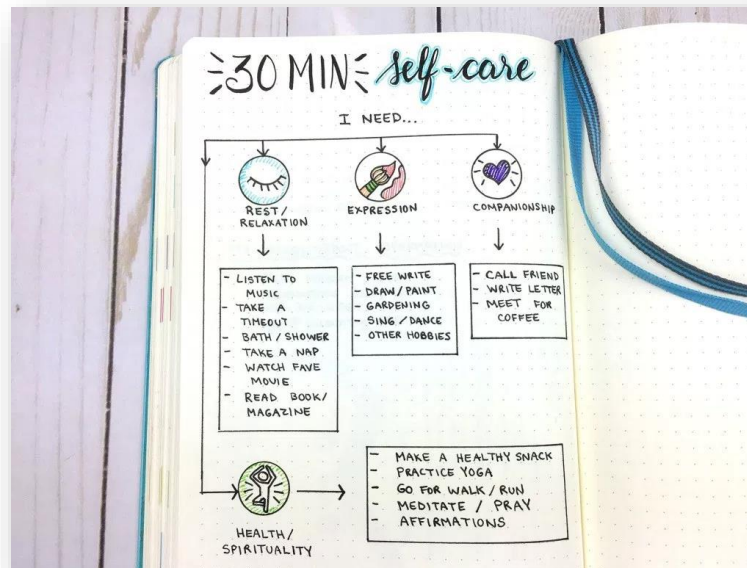 30 MIN self-care
I NEED...
REST/
RELAXATION
- LISTEN TO
MUSIC
- TAKE A
TIMEOUT
- BATH / SHOWER
- TAKE A NAP
- WATCH FAVE
MOVIE
- READ BOOK/
MAGAZINE
EXPRESSION
- FREE WRITE
- DRAW/PAINT
- GARDENING
- SING / DANCE
- OTHER HOBBIES
COMPANIONSHIP
- CALL FRIEND
- WRITE LETTER
- MEET FOR
COFFEE
HEALTH/
SPIRITUALITY
- MAKE A HEALTHY SNACK
- PRACTICE YOGA
- GO FOR WALK / RUN
- MEDITATE / PRAY
- AFFIRMATIONS